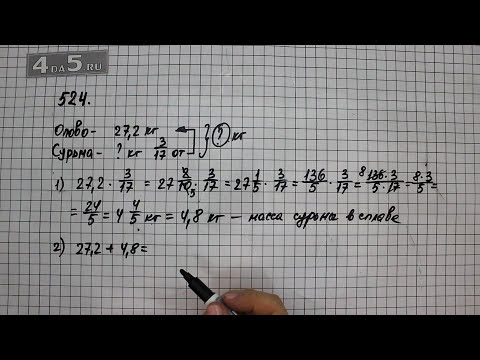 4 DA 5.RU
524.
Олово- 27,2 кг
Сурьма- ? кг 3/17 от } ? кг
1) 27,2 · 3/17 = 27 2/10 · 3/17 = 27 1/5 · 3/17 = 136/5 · 3/17 = 136·3/5·17 = 8·3/5 =
= 24/5 = 4 4/5 кг = 4,8 кг — масса сурьмы в сплаве
2) 27,2 + 4,8 =